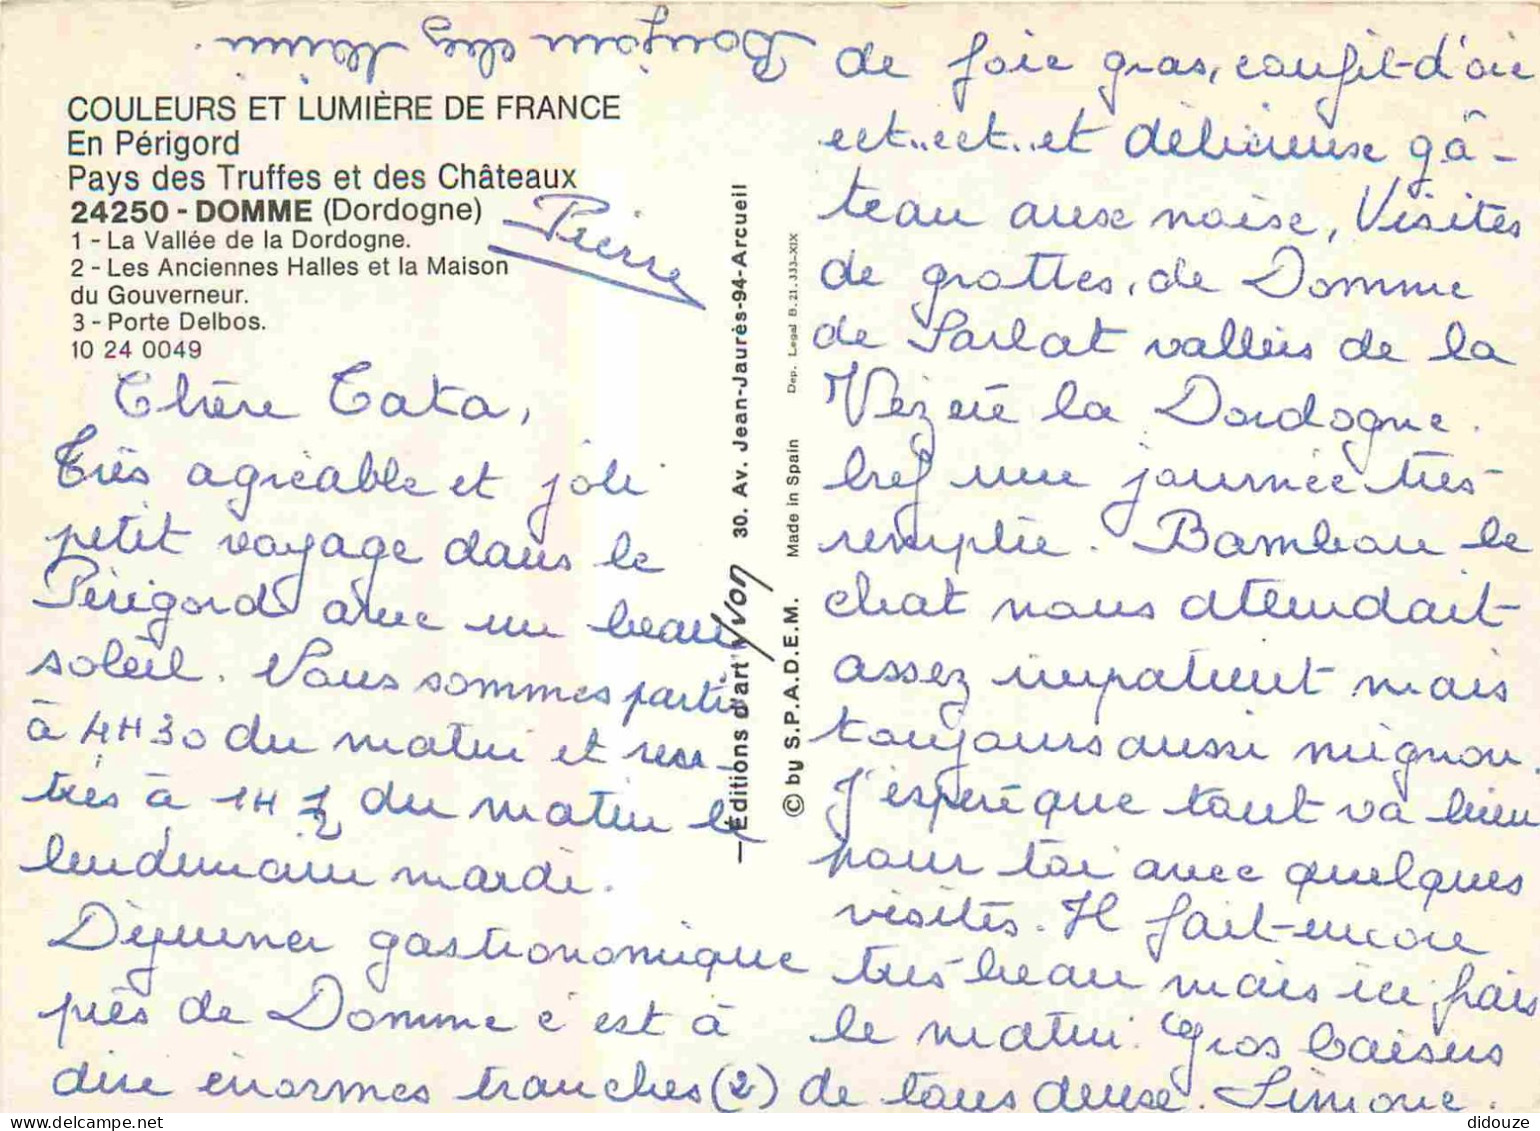 COULEURS ET LUMIÈRE DE FRANCE
En Périgord
Pays des Truffes et des Châteaux
24250 - DOMME (Dordogne)
1 - La Vallée de la Dordogne.
2 - Les Anciennes Halles et la Maison
du Gouverneur.
3 - Porte Delbos.
10 24 0049
Pierre
Chère Tata,
Très agréable et joli
petit voyage dans le
Périgord avec un beau
soleil. Nous sommes parti
à 4H30 du matin et ren-
trés à 1H 1/2 du matin le
lendemain mardi.
Déjeuner gastronomique
près de Domme c'est à
dire énormes tranches (2)
de foie gras, confit d'oie
ect..ect..et délicieuse gâ-
teau aux noix, Visites
de grottes, de Domme
de Sarlat vallées de la
Vézère la Dordogne.
bref une journée très
remplie. Bambou le
chat nous attendait
assez impatient mais
toujours aussi mignon.
J'espère que tout va bien
pour toi avec quelques
visites. Il fait encore
très beau mais ici frais
le matin. Gros baisers
de tous deux. Simone.
Bonjour chez
—Editions d'art Yvon 30. Av. Jean-Jaurès-94-Arcueil
© by S.P.A.D.E.M. Made in Spain Dep. Legal B. 21. 333-XIX
delcampe.net
didouze